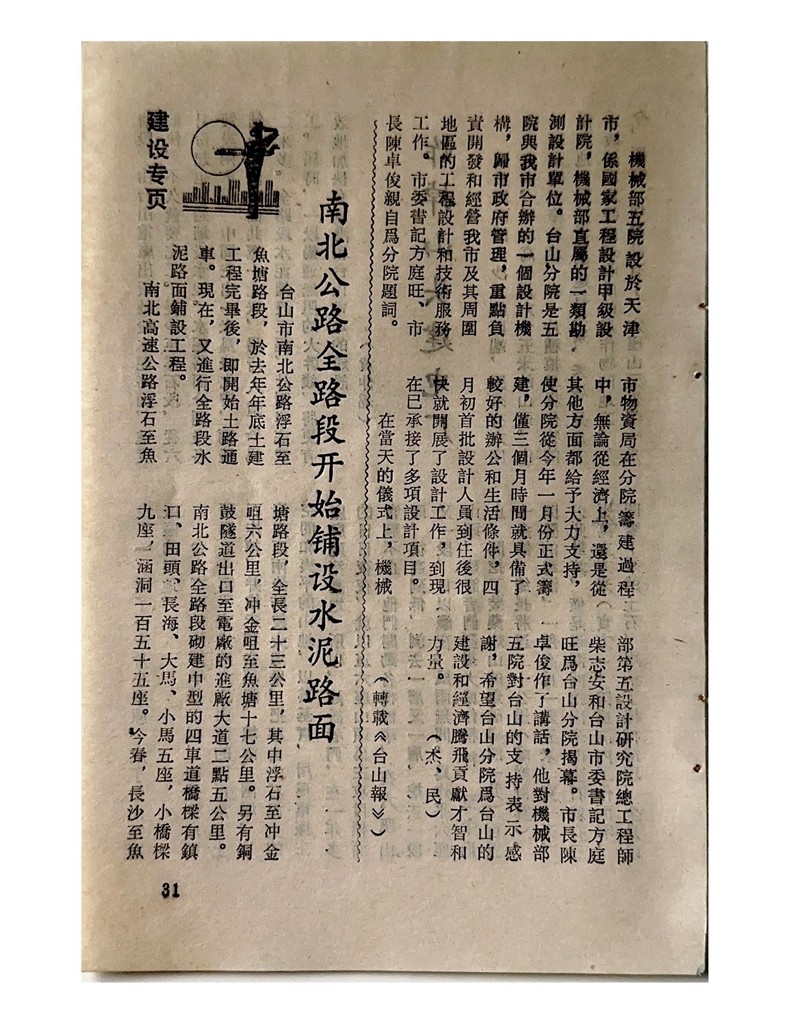 機械部五院設於天津
市，係國家工程設計甲級設
計院，機械部直屬的一類勘
測設計單位。台山分院是五
院與我市合辦的一個設計機
構，歸市政府管理，重點負
責開發和經營我市及其周圍
地區的工程設計和技術服務
工作。市委書記方庭旺、市
長陳卓俊親自爲分院題詞。
市物資局在分院籌建過程
中，無論從經濟上，還是從
其他方面都給予大力支持，
使分院從今年一月份正式籌
建，僅三個月時間就具備了
較好的辦公和生活條件，四
月初首批設計人員到任後很
快就開展了設計工作，到現
在已承接了多項設計項目。
在當天的儀式上，機械
部第五設計研究院總工程師
柴志安和台山市委書記方庭
旺爲台山分院揭幕。市長陳
卓俊作了講話，他對機械部
五院對台山的支持表示感
謝，希望台山分院爲台山的
建設和經濟騰飛貢獻才智和
力量。（杰、民）
（轉載《台山報》）
南北公路全路段开始铺设水泥路面
建设专页
台山市南北公路浮石至
魚塘路段，於去年年底土建
工程完畢後，即開始土路通
車。現在，又進行全路段水
泥路面鋪設工程。
南北高速公路浮石至魚
塘路段，全長二十三公里，其中浮石至冲金
咀六公里，冲金咀至魚塘十七公里。另有銅
鼓隧道出口至電廠的進廠大道二點五公里。
南北公路全路段砌建中型的四車道橋樑有鎮
口、田頭、長海、大馬、小馬五座，小橋樑
九座，涵洞一百五十五座。今春，長沙至魚
31